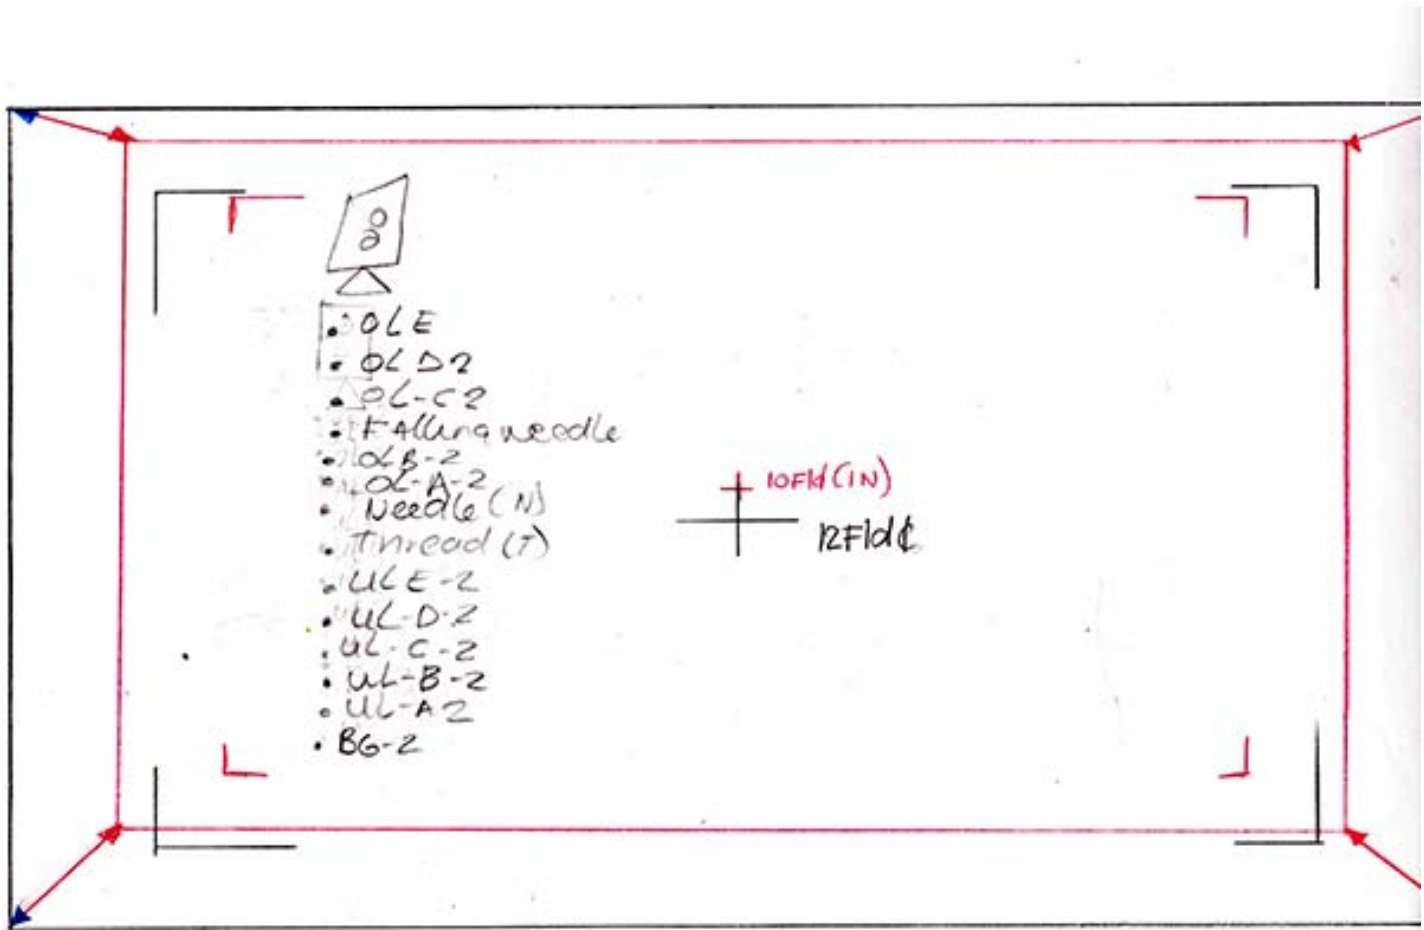 • OLE
• OLD2
• OL-C2
• Falling needle
• OLB-2
• OL-A-2
• Needle (N)
• Thread (T)
• ULE-2
• UL-D-2
• UL-C-2
• UL-B-2
• UL-A2
• BG-2
10Fld (IN)
12Fld ȼ